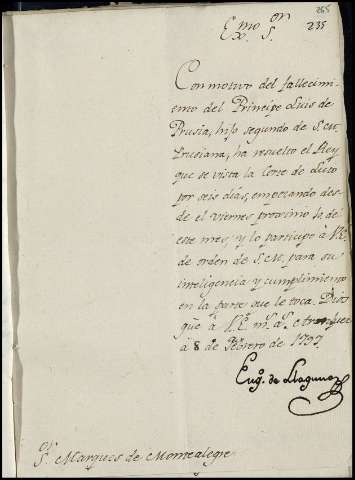 265
235
Exmo Sor.
Con motivo del fallecimi-
ento del Principe Luis de
Prusia, hijo segundo de S.M.
Prusiana, ha resuelto el Rey
que se vista la Corte de Luto
por seis dias, empezando des-
de el viernes proximo 10 de
este mes, y lo participo à V.E.
de orden de S.M. para su
inteligencia y cumplimiento
en la parte que le toca. Dios
gue. à V.E. ms. as. Aranjuez
à 8 de Febrero de 1797.
Eugo. de Llaguno
Sor. Marques de Montealegre